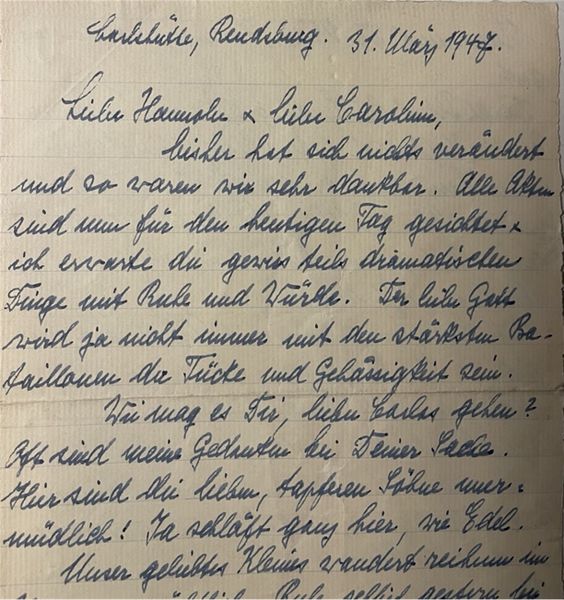 Carlshütte, Rendsburg. 31. März 1947.
Liebe Hannele & liebe Carolinn,
bisher hat sich nichts verändert
und so waren wir sehr dankbar. Alle Akten
sind nun für den heutigen Tag gesichtet &
ich erwarte die gewiss teils dramatischen
Dinge mit Ruhe und Würde. Der liebe Gott
wird ja nicht immer mit den stärksten Ba-
taillonen der Tücke und Gehässigkeit sein.
Wie mag es Dir, lieber Carlos gehen?
Oft sind meine Gedanken bei Deiner Sache.
Hier sind die lieben, tapferen Söhne uner-
müdlich! Ja schläft ganz hier, wie Edel.
Unser geliebtes Kleines wandert reihum im
Ruhe selbst gestern bei